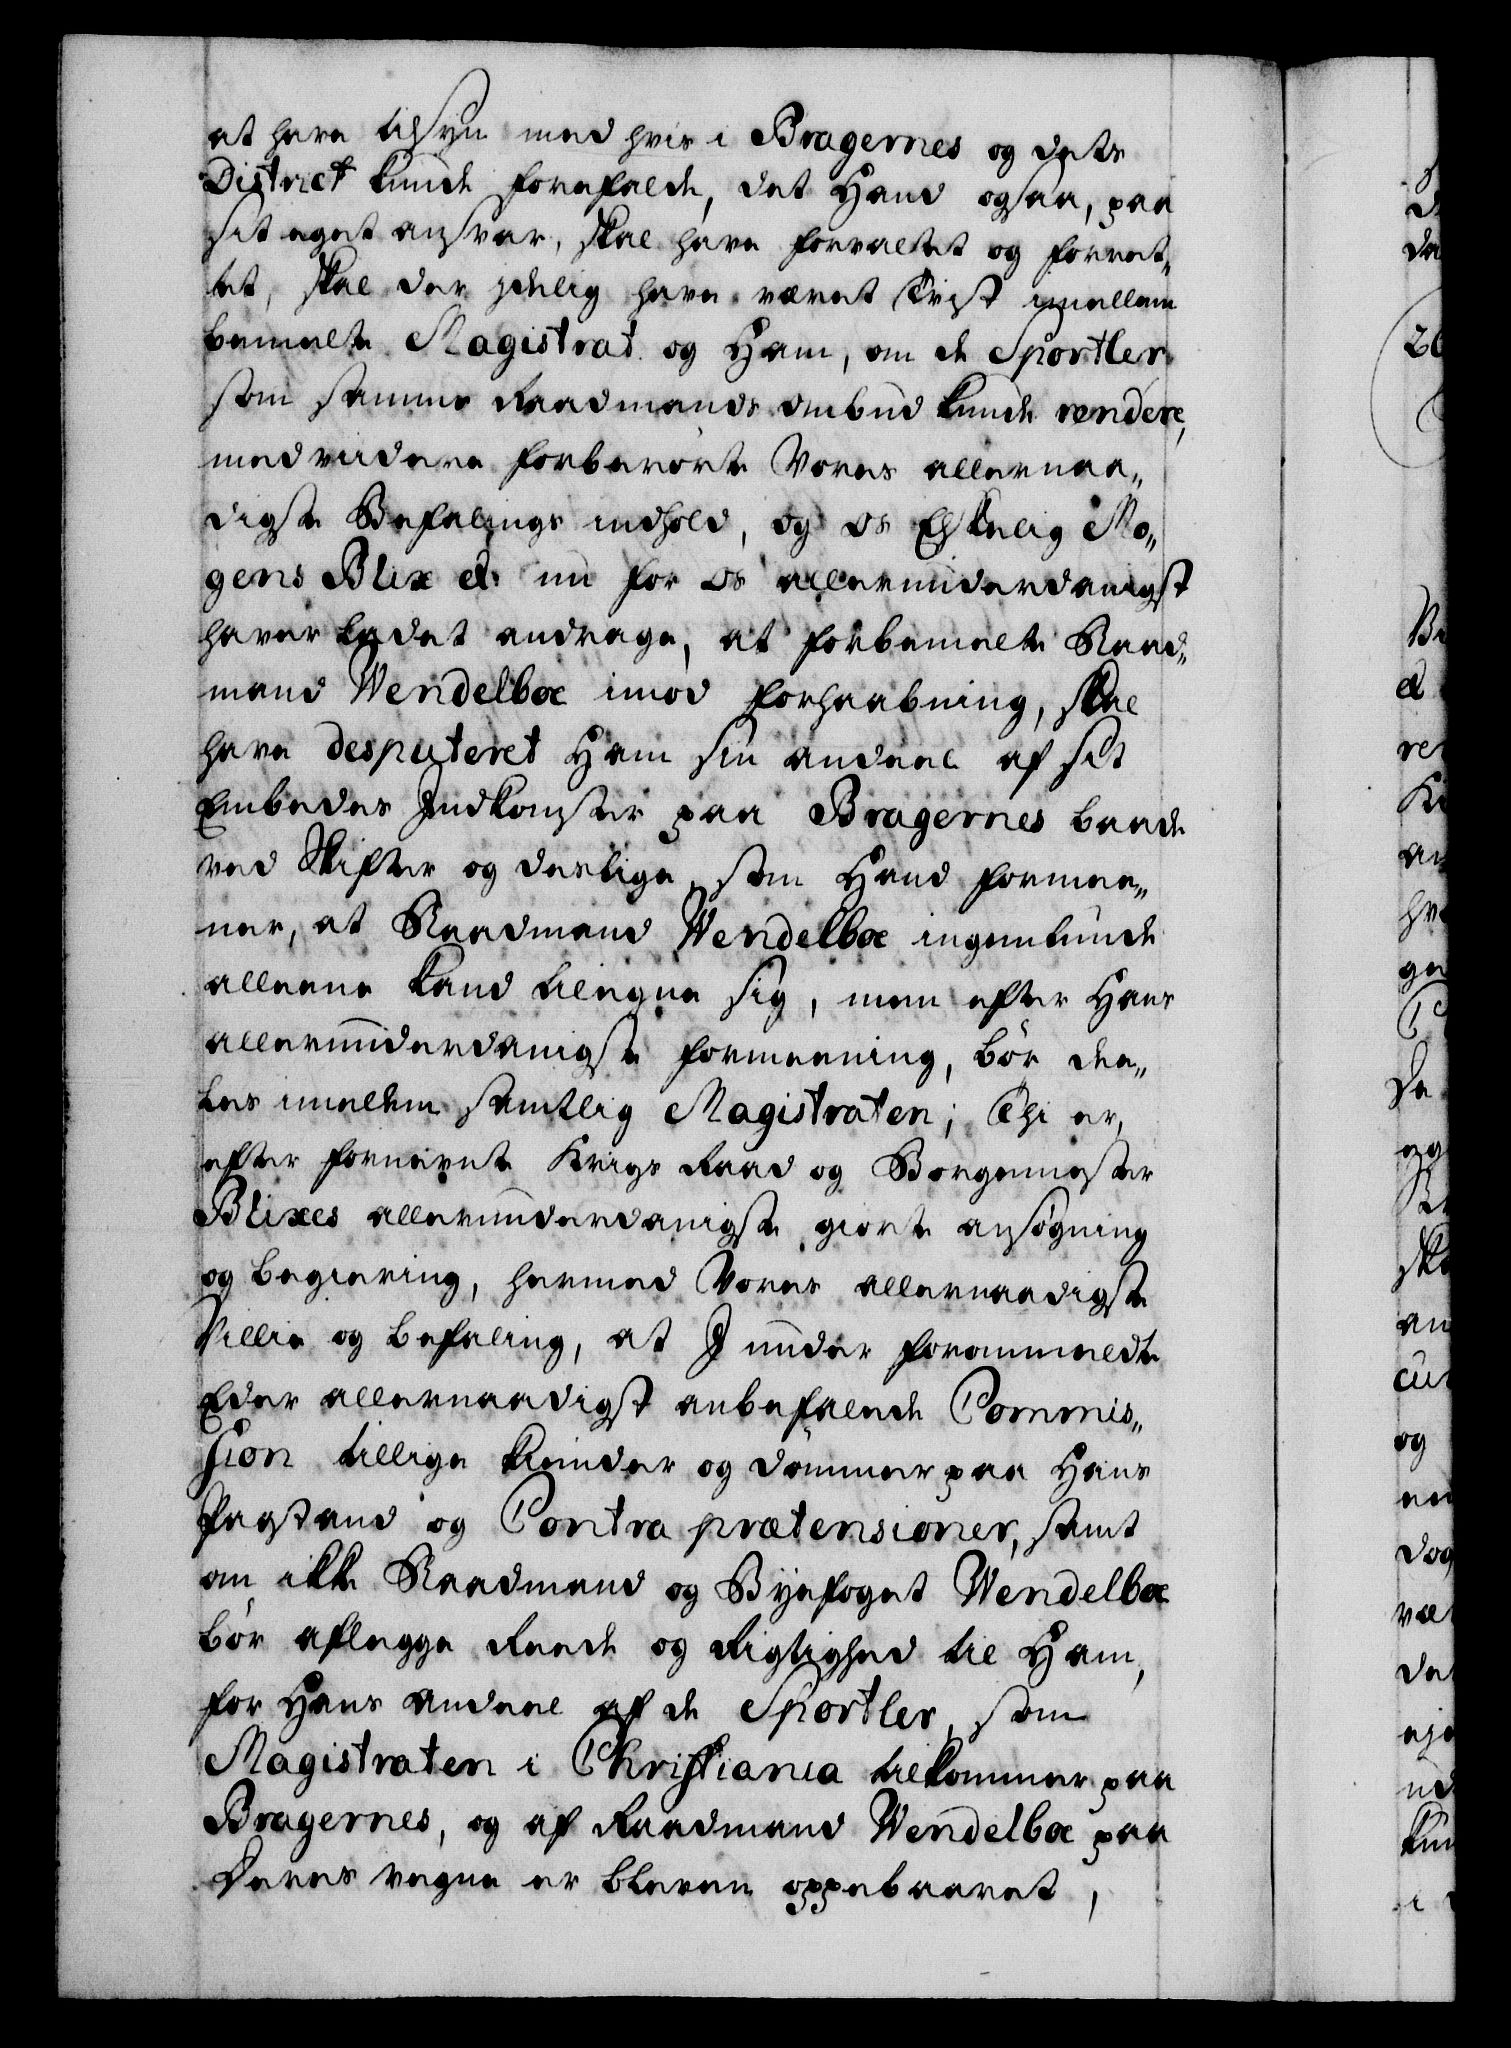 at have tilsyn med hvis i Bragernes og dets
District kunde forefalde, det Hand ogsaa, paa
sit eget ansvar, skal have forvaltet og forret„
tet, skal der jdelig have været Trist imellem
bemelte Magistrat og Ham, om de Sportler
som samme Raadmands Ombud kunde rendere,
med viidere forberørte Vores allernaa„
digste Befalings indhold, og os Elskelig Mo„
gens Blix etc: nu for os allerunderdanigst
haver ladet andrage, at forbemelte Raad„
mand Wendelboe imod forhaabning, skal
have desputeret Ham sin andeel af sit
Embedes Jndkomster paa Bragernes baade
ved Skifter og deslige, som Hand formee„
ner, at Raadmand Wendelboe ingenlunde
alleene kand tilegne sig, men efter Hans
allerunderdanigste formeening, bør dee„
les imellem samtlig Magistraten; Thi er,
efter fornevnte Krigs Raad og Borgemester
Blixes allerunderdanigste giorte ansøgning
og begiering, hermed Vores allernaadigste
Villie og befaling, at J under forommeldte
Eder allernaadigst anbefalede Commis„
sion tillige kiender og dømmer paa Hans
Paastand og Contra prætensioner, samt
om ikke Raadmand og Byefoget Wendelboe
bør aflegge Reede og Rigtighed til Ham,
for Hans andeel af de Sportler, som
Magistraten i Christiania tilkommer paa
Bragernes, og af Raadmand Wendelboe paa
Deres vegne er bleven oppebaaret,